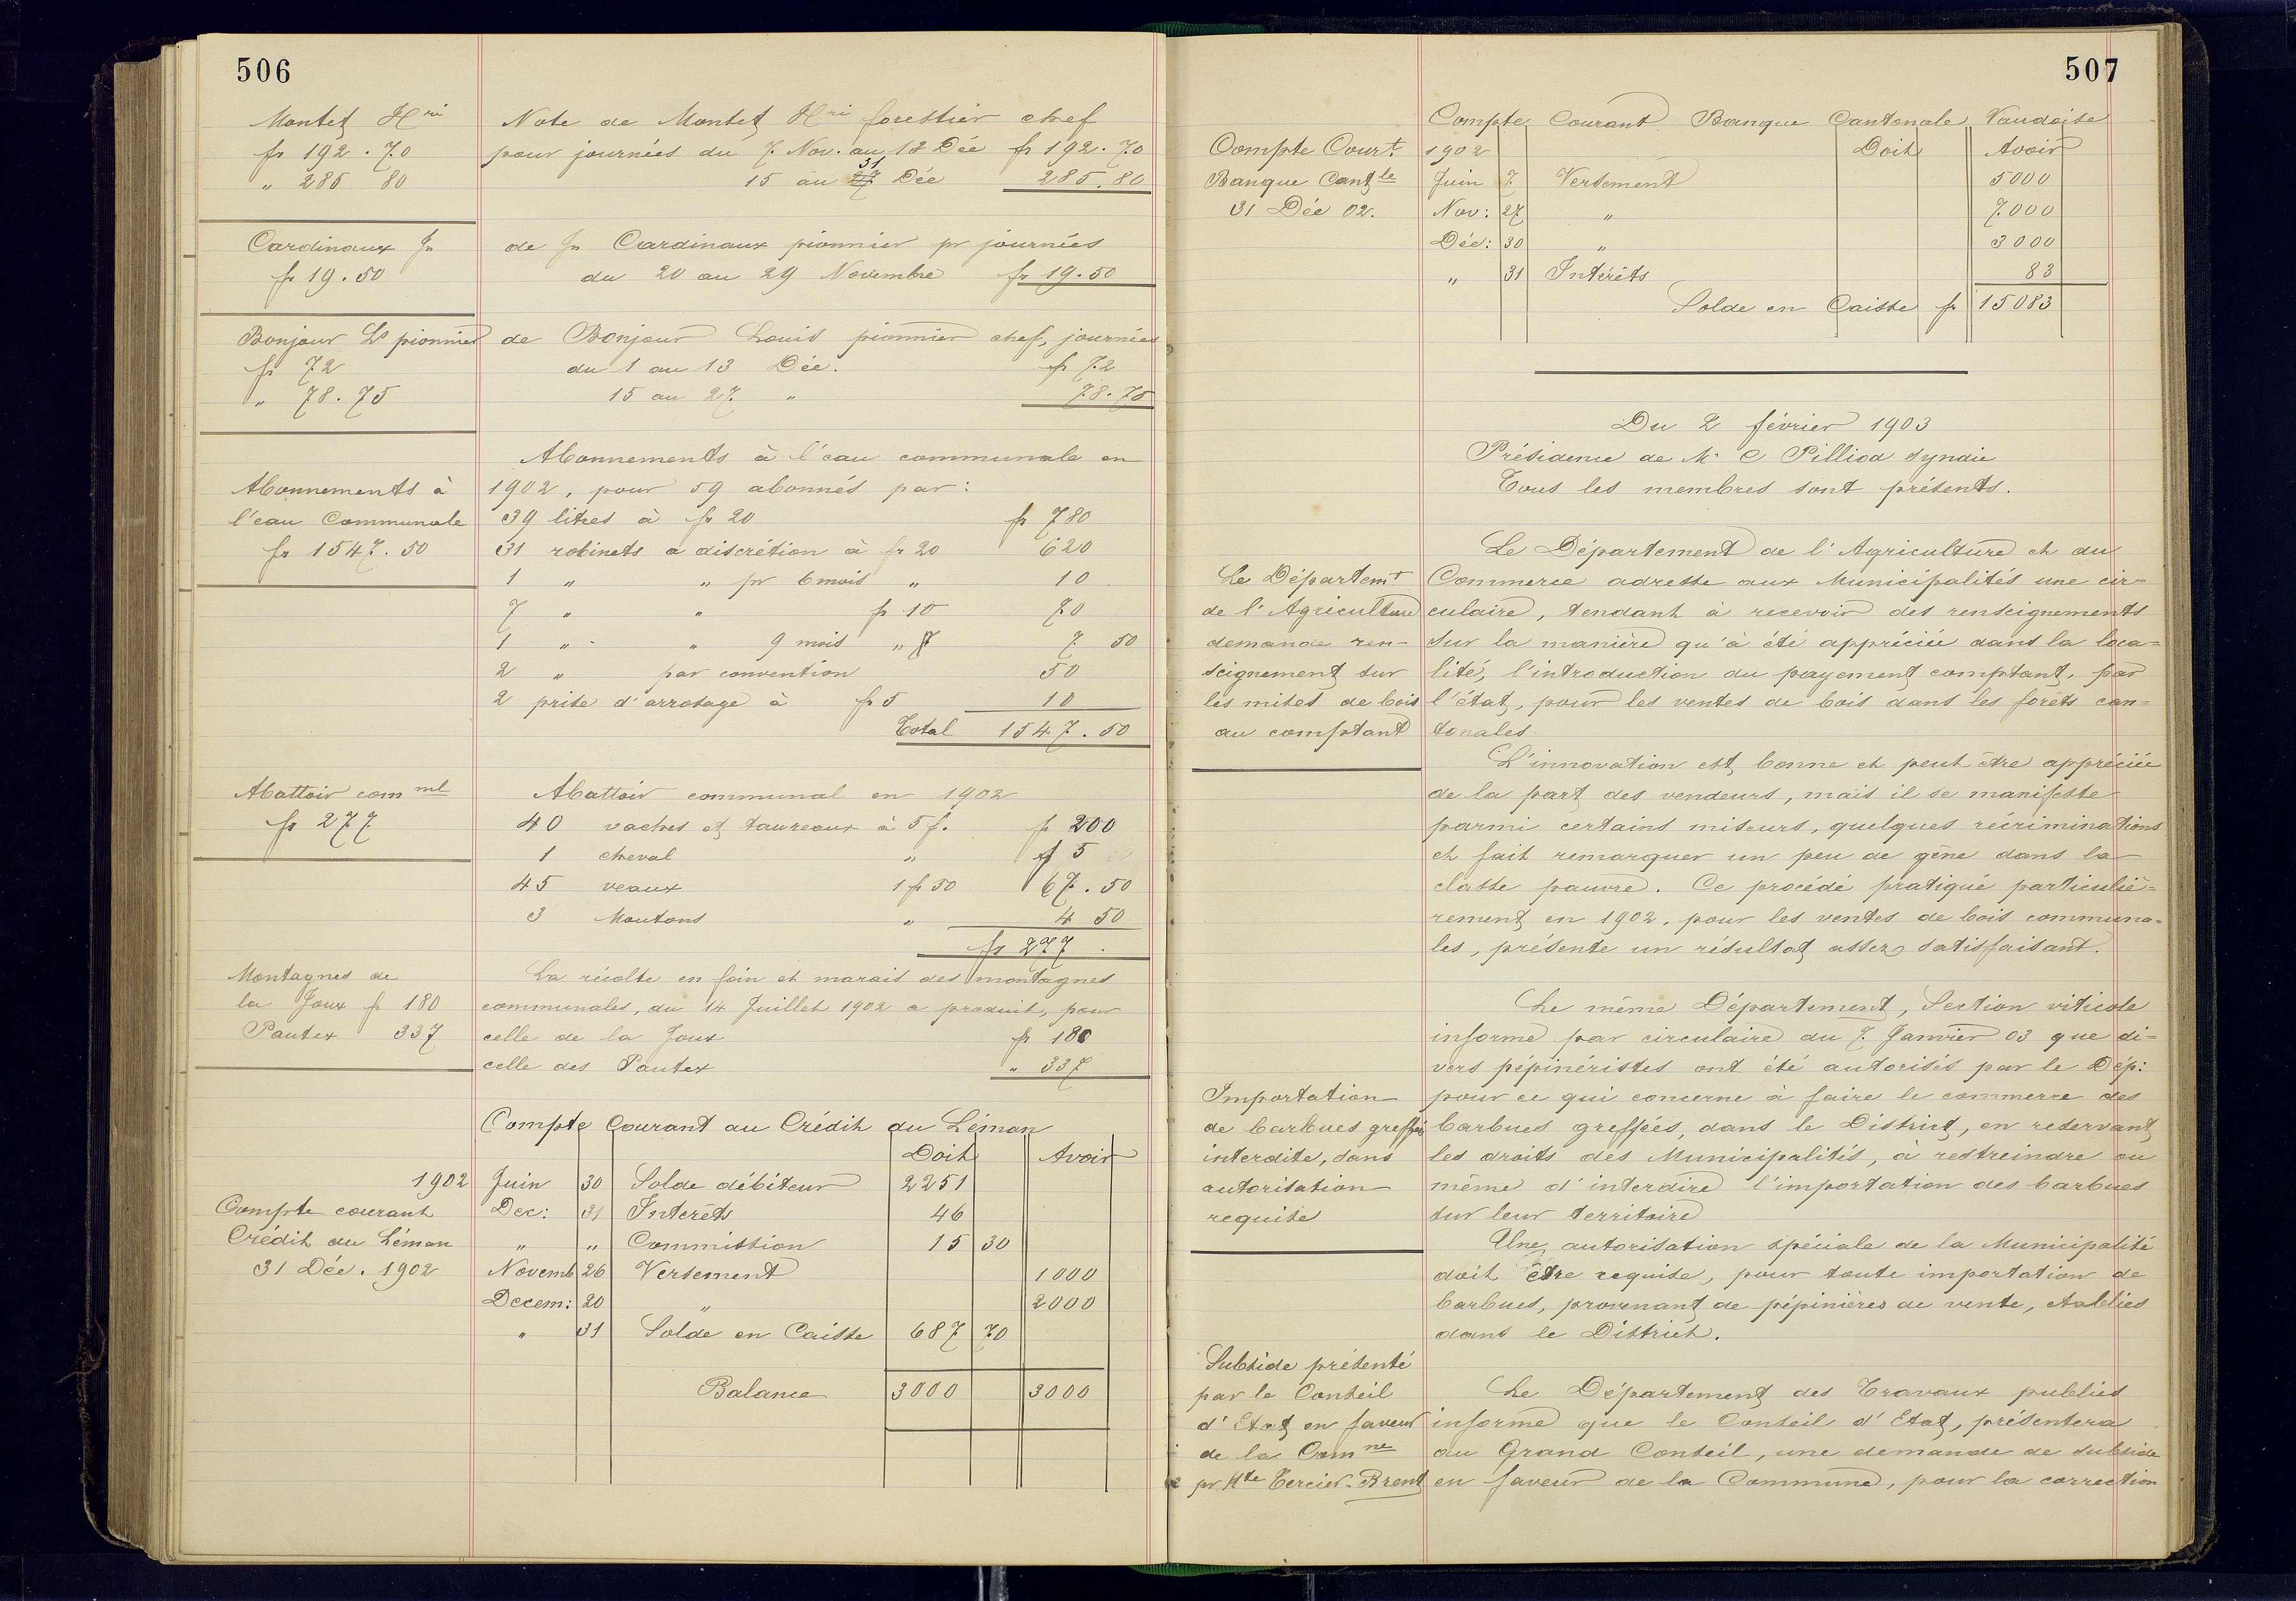 506
Montet Hri
fr 192.70
" 285 80
Note de Montet Hri forestier chef
pour journées du 7 Nov. au 12 Déc fr 192.70
15 au 27 31 Déc 285.80
Cardinaux Jn
fr 19.50
de Jn Cardinaux pionnier pr journées
du 20 au 29 Novembre fr 19.50
Bonjour Ls pionnier
fr 72
" 78.75
de Bonjour Louis pionnier chef, journées
du 1 au 13 Déc. fr 72
15 au 27 " 78.75
Abonnements à
l'eau Communale
fr 1547.50
Abonnements à l'eau communale en
1902, pour 59 abonnés par:
39 litres à fr 20 fr 780
31 robinets a discrétion à fr 20 620
1 " " pr 6 mois " 10
7 " " fr 10 70
1 " " 9 mois " 7 50
2 " par convention 50
2 prise d'arrosage à fr 5 10
Total 1547.50
Abattoir comml
fr 277
Abattoir communal en 1902
40 vaches et taureaux à 5 f. fr 200
1 cheval " f 5
45 veaux 1 fr 50 67.50
3 Moutons " 4 50
fr 277.
Montagnes de
la Joux fr 180
Pautex 337
La récolte en foin et marais des montagnes
communales, du 14 Juillet 1902 a produit, pour
celle de la Joux fr 180
celle des Pautex " 337
1902
Compte courant
Crédit du Léman
31 Déc. 1902
Compte Courant au Crédit du Léman
Doit Avoir
Juin 30 Solde débiteur 2251
Dec: 31 Intérêts 46
" " Commission 15 30
Novemb 26 Versement 1000
Decem: 20 " 2000
" 31 Solde en Caisse 687 70
Balance 3000 3000
507
Compte Court.
Banque Cantle
31 Déc 02.
Compte Courant Banque Cantonale Vaudoise
1902 Doit Avoir
Juin 7 Versement 5000
Nov: 27 " 7000
Déc: 30 " 3000
" 31 Intérêts 83
Solde en Caisse fr 15083
Du 2 février 1903
Présidence de Mr C Pilliod syndic
Tous les membres sont présents.
Le Départemt
de l'Agriculture
demande ren-
seignement sur
les mises de bois
au comptant
Le Département de l'Agriculture et du
Commerce adresse aux Municipalités une cir=
culaire, tendant à recevoir des renseignements
sur la manière qu'à été appréciée dans la loca=
lité, l'introduction du payement comptant, par
l'état, pour les ventes de bois dans les forêts can=
tonales.
L'innovation est bonne et peut être appréciée
de la part des vendeurs, mais il se manifeste
parmi certains miseurs, quelques récriminations
et fait remarquer un peu de gêne dans la
classe pauvre. Ce procédé pratiqué particuliè=
rement en 1902, pour les ventes de bois communa=
les, présente un résultat assez satisfaisant.
Importation
de barbues greffées
interdite, sans
autorisation
requise
Le même Département, Section viticole
informe par circulaire du 7 Janvier 03 que di=
vers pépinéristes ont été autorisés par le Dép:
pour ce qui concerne à faire le commerce des
barbues greffées, dans le District, en reservant
les droits des Municipalités, à restreindre ou
même d'interdire l'importation des barbues
sur leur territoire
Une autorisation spéciale de la Municipalité
doit être requise, pour toute importation de
barbues, provenant de pépinières de vente, établies
dans le District.
Subside présenté
par le Conseil
d'Etat en faveur
de la Comne
pr. Rte Tercier-Brent
Le Département des Travaux publics
informe que le Conseil d'Etat, présentera
au Grand Conseil, une demande de subside
en faveur de la Commune, pour la correction